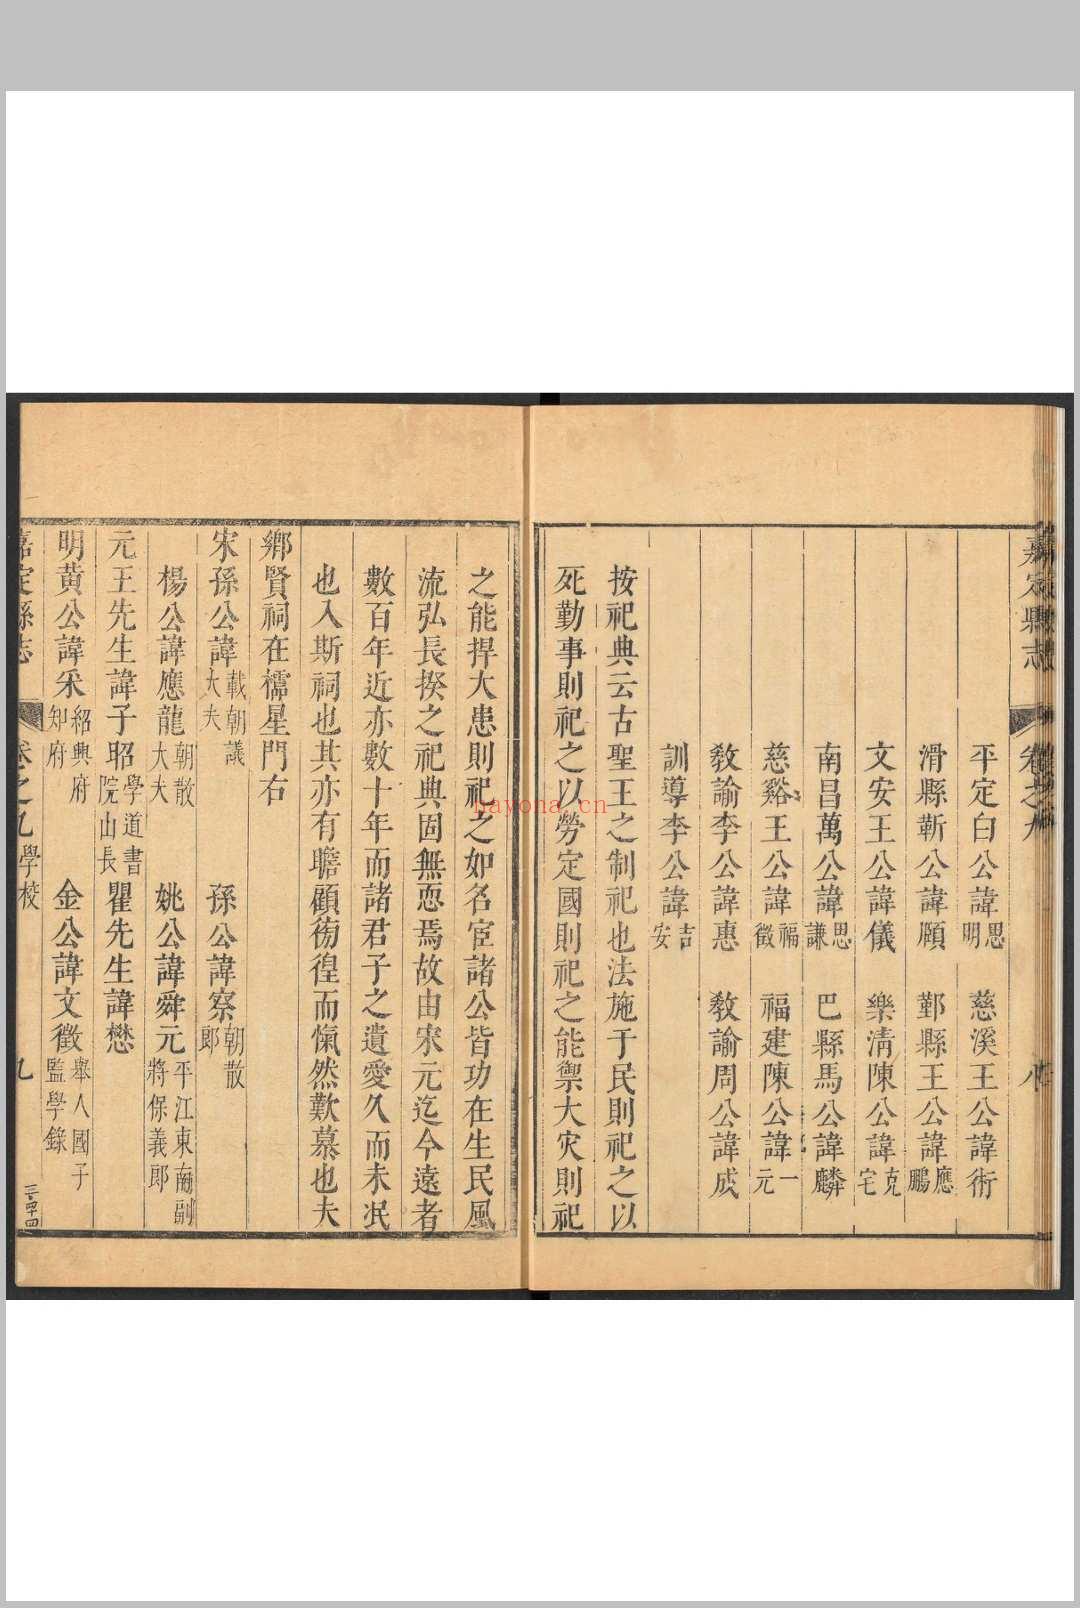 嘉定縣志 卷之九 八
平定白公諱思明 慈溪王公諱術
滑縣靳公諱頤 鄞縣王公諱應鵬
文安王公諱儀 樂清陳公諱克宅
南昌萬公諱思謙 巴縣馬公諱麟
慈谿王公諱福徵 福建陳公諱一元
敎諭李公諱惠 敎諭周公諱成
訓導李公諱吉安
按祀典云古聖王之制祀也法施于民則祀之以
死勤事則祀之以勞定國則祀之能禦大灾則祀
之能捍大患則祀之如名宦諸公皆功在生民風
流弘長揆之祀典固無恧焉故由宋元迄今遠者
數百年近亦數十年而諸君子之遺愛久而未泯
也入斯祠也其亦有瞻顧徬徨而愾然歎慕也夫
鄉賢祠在櫺星門右
宋孫公諱載朝議大夫 孫公諱察朝散郎
楊公諱應龍朝散大夫 姚公諱舜元平江東南副將保義郎
元王先生諱子昭學道書院山長 瞿先生諱懋
明黃公諱采紹興府知府 金公諱文徵舉人國子監學錄
嘉定縣志 卷之九 學校 九 三四四
nayona.cn